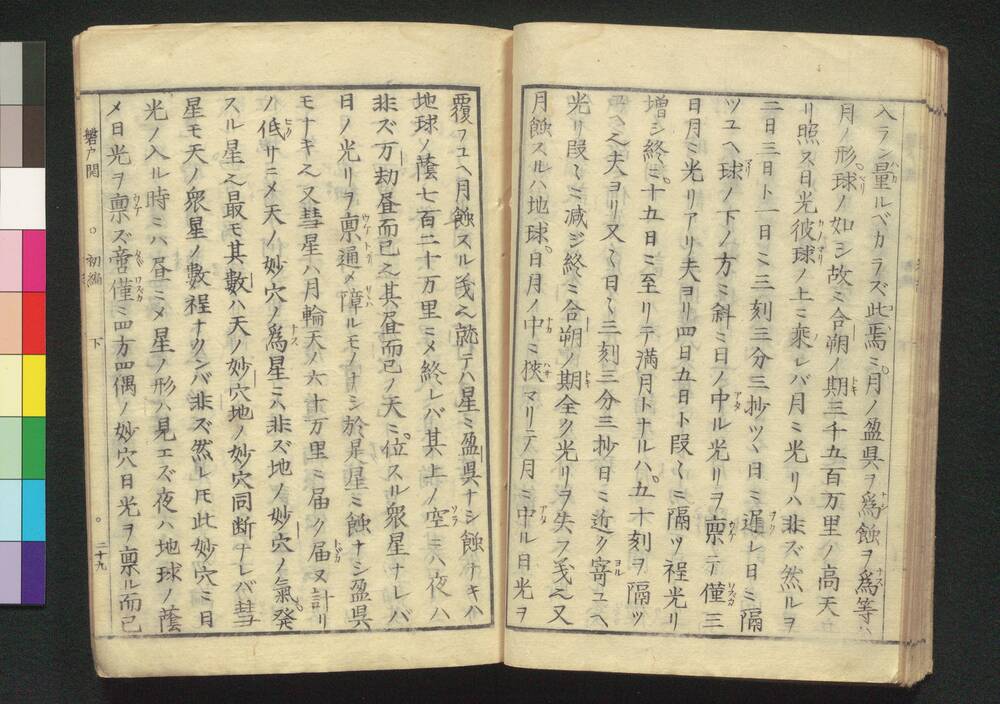 入ラン量ルベカラズ此焉ミ月ノ盈昃ヲ爲蝕ヲ爲等ハ
月ノ形球ノ如シ故ミ合朔ノ期三千五百万里ノ高天ヨ
リ照ス日光彼球ノ上ミ乘レバ月ミ光リハ非ズ然ルヲ
二日三日ト一日ミ三刻三分三抄ツヽ日ミ遅レ日ミ隔
ツユヘ球ノ下ノ方ミ斜ミ日ノ中ル光リヲ稟テ僅三
日月ミ光リアリ夫ヨリ四日五日ト段〻ミ隔ツ程光リ
増シ終ミ十五日ミ至リテ満月トナルハ五十刻ヲ隔ツ
ユヘ之夫ヨリ又〻日〻三刻三分三抄日ミ近ク寄ユヘ
光リ段〻ミ減ジ終ミ合朔ノ期全ク光リヲ失フ義之又
月蝕スルハ地球日月ノ中ミ挾マリテ月ミ中ル日光ヲ
覆フユヘ月蝕スル義之就テハ星ミ盈昃ナシ蝕ナキハ
地球ノ蔭七百二十万里ミメ終レバ其上ノ空ミハ夜ハ
非ズ万劫昼而已之其昼而已ノ天ミ位スル衆星ナレバ
日ノ光リヲ稟通メ障ルモノナシ於是星ミ蝕ナシ盈昃
モナキ之又彗星ハ月輪天ノ六十万里ミ届ク届又計リ
ノ低サニメ天ノ妙穴ノ爲星ミハ非ズ地ノ妙穴ノ氣発
スル星之最モ其數ハ天ノ妙穴地ノ妙穴同断ナレバ彗
星モ天ノ衆星ノ數程ナクンバ非ズ然レ𪜈此妙穴ミ日
光ノ入ル時ミハ昼ミメ星ノ形ハ見エズ夜ハ地球ノ蔭
メ日光ヲ稟ズ啻僅ミ四方四偶ノ妙穴日光ヲ稟ル而已
磐戸開 ○ 初編 下 ○ 二十九